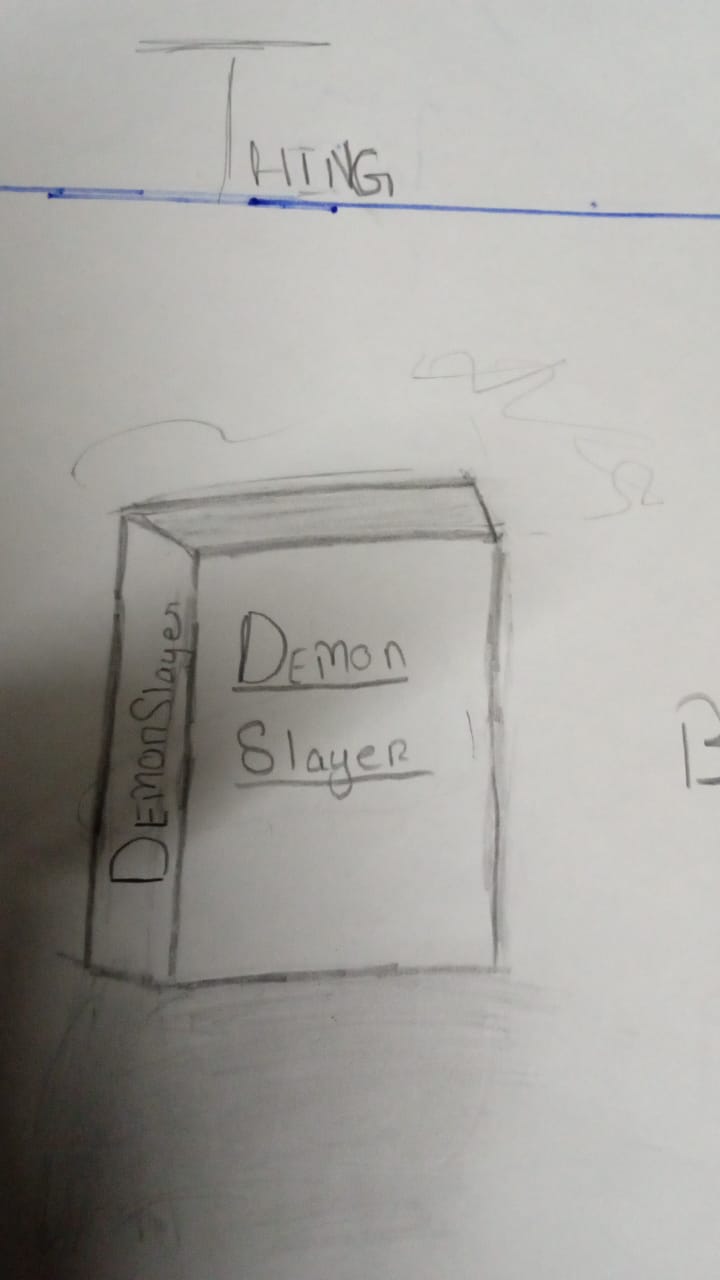 THING
Demon
Slayer
Demon Slayer
B